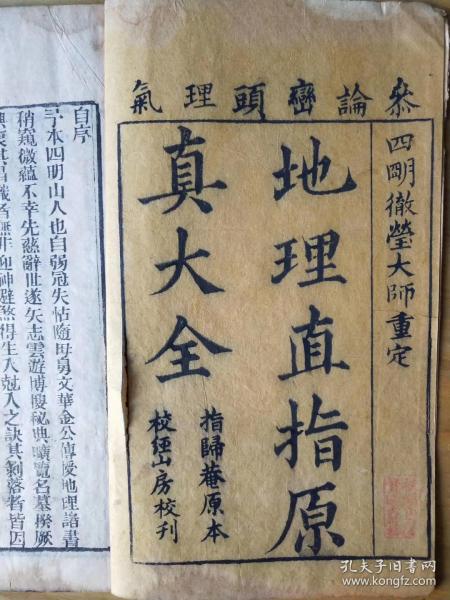 叅論巒頭理氣
四明徹瑩大師重定
地理直指原
真大全
指歸菴原本
校經山房校刊
自序
予本四明山人也自弱冠失怙隨母舅文華金公傳授地理諸書
稍窺微蘊不幸先慈辭世遂矢志雲遊博搜秘典曠覽名墓揆厥
得生入尅入之訣其剝落者皆因
孔夫子旧书网
www.kongfz.com